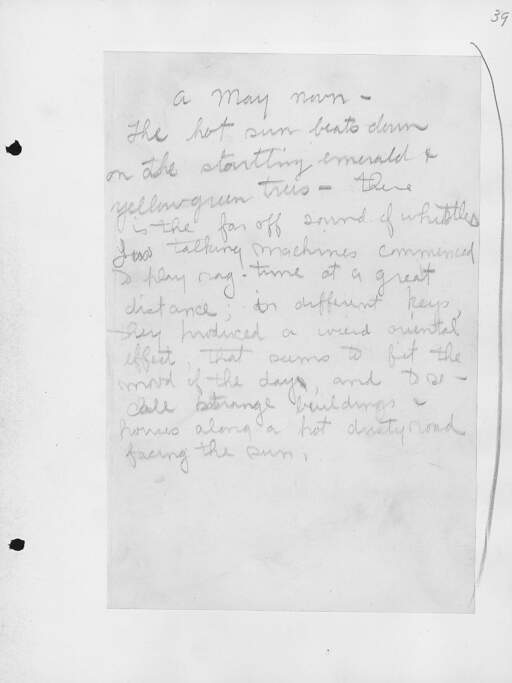 39
a May noon -
The hot sun beats down
on the startling emerald &
yellow green trees - there
is the far off sound of whistles
Two talking machines commenced
to play rag-time at a great
distance, in different keys,
they produced a weird oriental
effect, that seems to fit the
mood of the day, and to re-
call strange buildings -
houses along a hot dusty road
facing the sun.